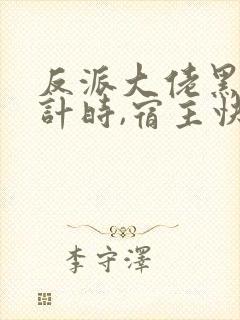 反派大佬黑
計時,宿主快
李守澤